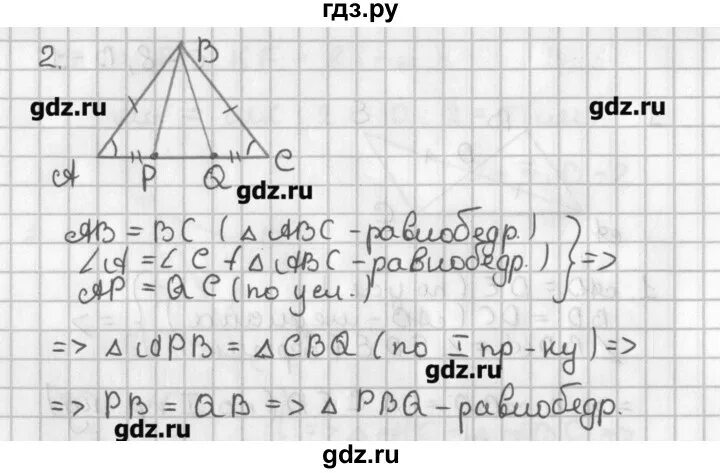 гдз.ру
2.
B
gdz.ru
gdz.ru
A P Q C
gdz.ru
AB = BC (△ ABC - равнобедр.)
∠A = ∠C (△ ABC - равнобедр.) } =>
AP = QC (по усл.)
=> △ APB = △ CBQ (по I пр-ку) =>
gdz.ru
=> PB = QB => △ PBQ - равнобедр.
gdz.ru
gdz.ru